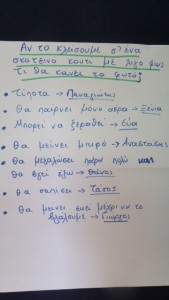 Αν το κλείσουμε σ' ένα
σκοτεινό κουτί με λίγο φως
τι θα κάνει το φυτό;
• Τίποτα → Παναγιώτης
• Θα παίρνει μόνο αέρα → Ξένια
• Μπορεί να ξεραθεί → Εύα
• Θα μείνει μικρό → Αναστάσης
• Θα μεγαλώσει πάρα πολύ και
θα βγει έξω → Θάνος
• Θα σαπίσει → Τάσος
• Θα μείνει εκεί μέχρι να το
βγάλουμε → Γιώργος